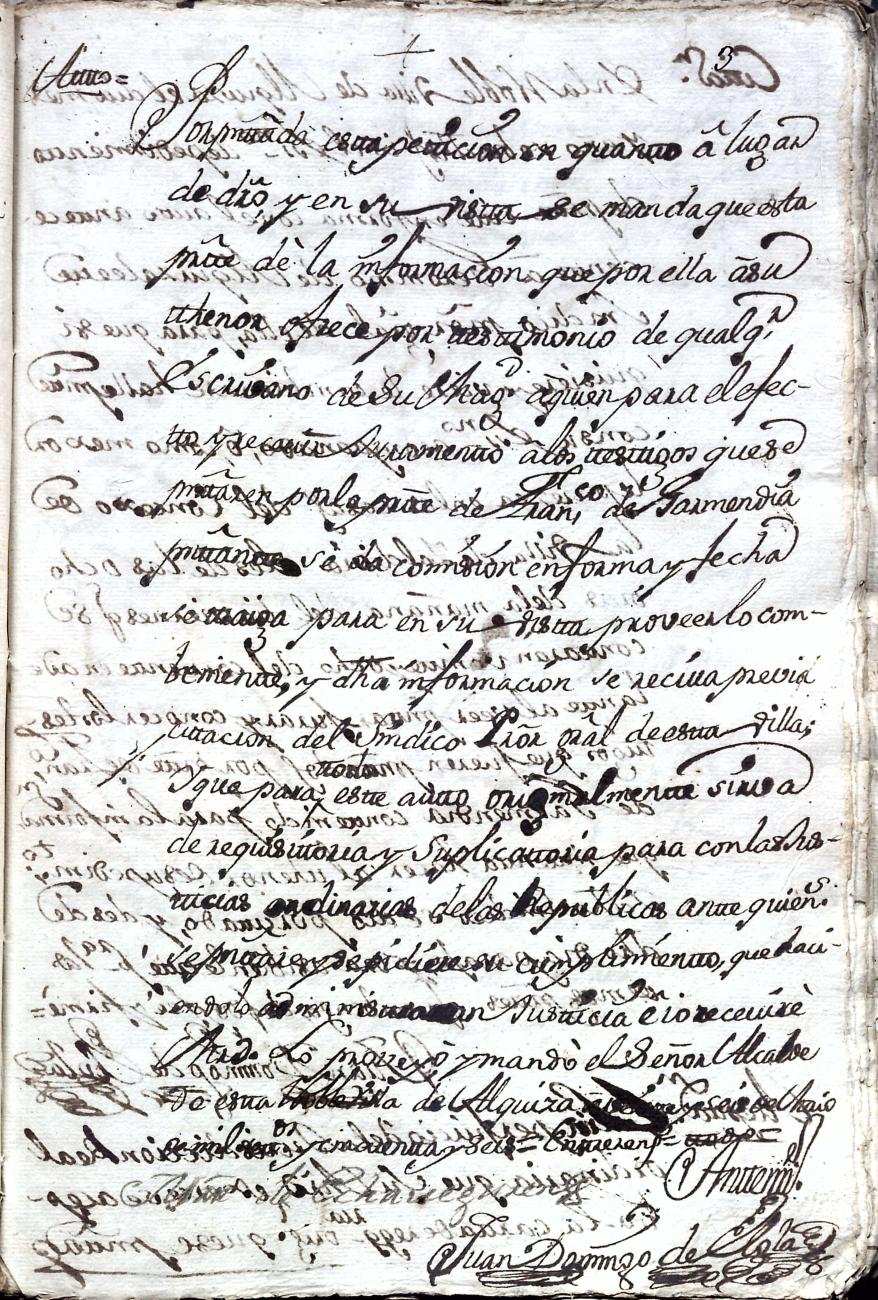 3
Autto=
Por presenttada estta petticion en quantto â lugar
de dro, y en su vistta se manda que esta
partte dè la informacion que por ella â su
tthenor ofrece por testtimonio de qualqr
Escrivano de Su Magd aquien para el efec-
tto y recivir Juramentto a los testtigos que se
presenttaren por la partte de Franco de Garmendia
se dà comission en forma y fecha
se traiga para en su vistta proveer lo com-
beniente, y dha informacion se reciva previa
cittacion del Síndico Pror Gral de estta Villa;
y que para ttodo estte autto originalmentte sirva
de requisittoria y Suplicattoria para con las Jus-
tticias ordinarias de las Republicas antte quienes
se presenttare y se pidiere su cumplimientto, que haci-
endolo administtraran Justticia e io receviré
Mrd. Lo proveyó y mandó el Señor Alcalde
de estta Noble Villa de Alquiza a veintte y seis de Maio
de mil settos y cinquentta y seis= Enttrerreng= ttodo=
Antte mi
Juan Domingo de